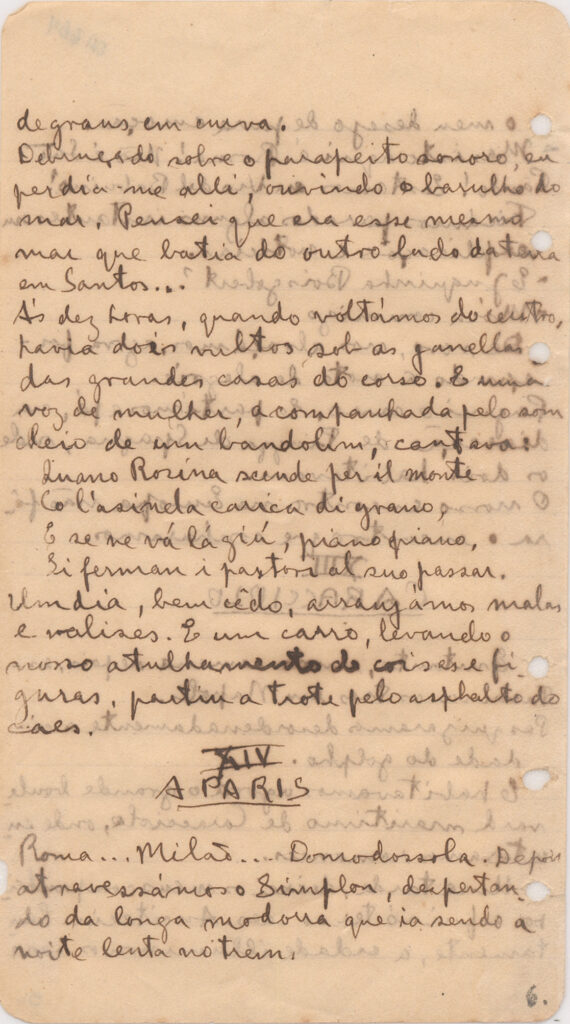 degraus, em curva.
Debruçado sobre o parapeito sonoro, eu
perdia-me alli, ouvindo o barulho do
mar. Pensei que era esse mesmo
mar que batia do outro lado da terra
em Santos...
Ás dez horas, quando voltámos do centro,
havia dois vultos sob as janellas
das grandes casas do corso. E uma
voz de mulher, acompanhada pelo som
cheio de um bandolim, cantava:
Luano Rosina scende per il monte
Co l'asinela carica di grano,
E se ne vá lá giú, piano piano,
Si ferman i pastori al suo passar.
Um dia, bem cêdo, arranjámos malas
e valises. E um carro, levando o
nosso atulhamento de coisas e fi-
guras, partiu a trote pelo asphalto do
caes.
XIV
A PARIS
Roma... Milão... Domodossola. Depois
atravessámos o Simplon, despertan-
do da longa modorra que ia sendo a
noite lenta no trem.
6.